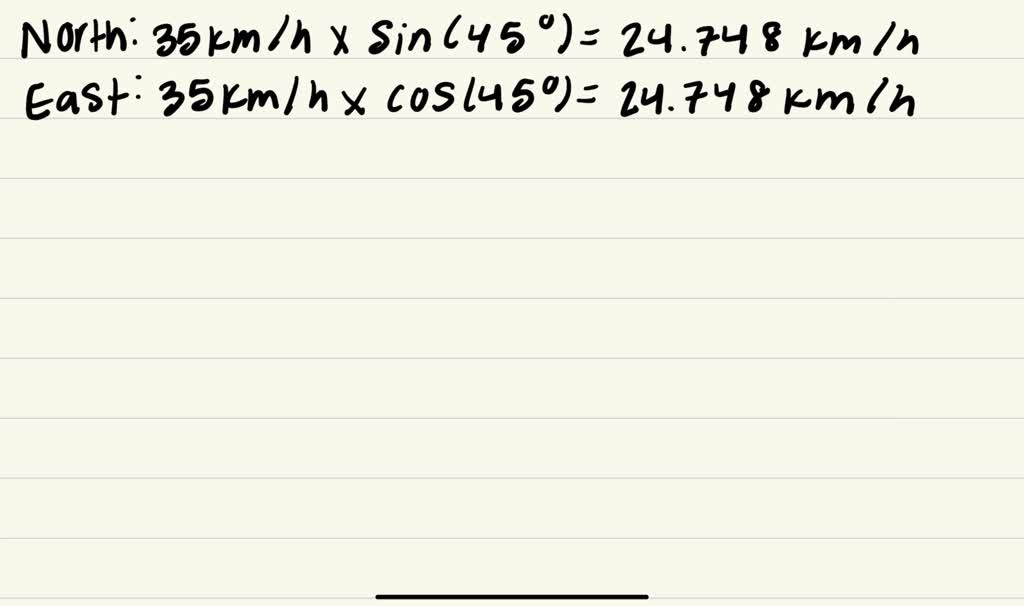 North: 35km/h x Sin(45°)= 24.748 km/h
East: 35km/h x cos(45°)= 24.748 km/h